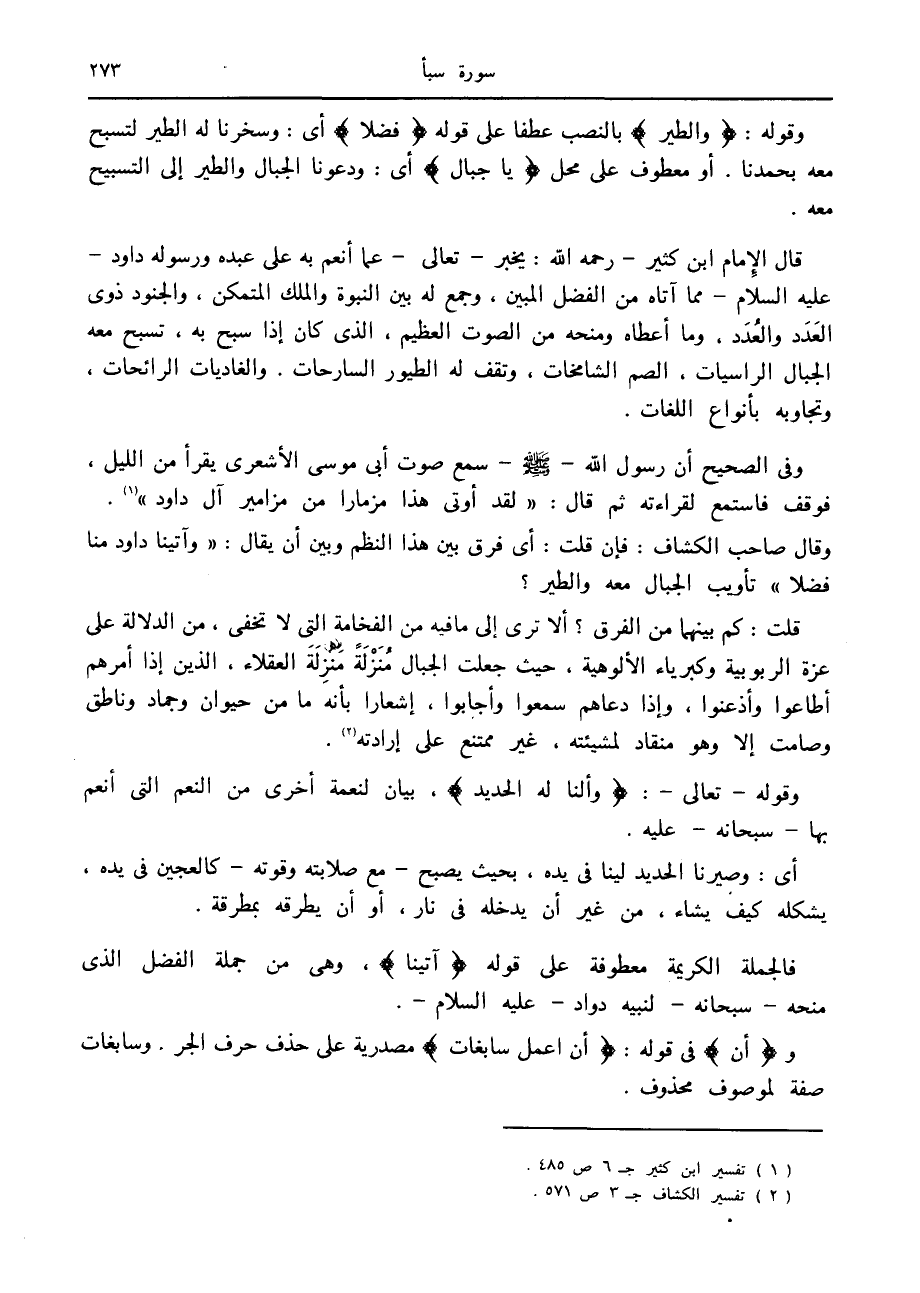 سورة سبأ ٢٧٣
وقوله : ﴿ والطير ﴾ بالنصب عطفا على قوله ﴿ فضلا ﴾ أى : وسخرنا له الطير لتسبح
معه بحمدنا . أو معطوف على محل ﴿ يا جبال ﴾ أى : ودعونا الجبال والطير إلى التسبيح
معه .
قال الإمام ابن كثير – رحمه الله : يخبر – تعالى – عما أنعم به على عبده ورسوله داود –
عليه السلام – مما آتاه من الفضل المبين ، وجمع له بين النبوة والملك المتمكن ، والجنود ذوى
العَدَد والعُدَد ، وما أعطاه ومنحه من الصوت العظيم ، الذى كان إذا سبح به ، تسبح معه
الجبال الراسيات ، الصم الشامخات ، وتقف له الطيور السارحات . والغاديات الرائحات ،
وتجاوبه بأنواع اللغات .
وفى الصحيح أن رسول الله – ﷺ – سمع صوت أبى موسى الأشعرى يقرأ من الليل ،
فوقف فاستمع لقراءته ثم قال : « لقد أوتى هذا مزمارا من مزامير آل داود »(١) .
وقال صاحب الكشاف : فإن قلت : أى فرق بين هذا النظم وبين أن يقال : « وآتينا داود منا
فضلا » تأويب الجبال معه والطير ؟
قلت : كم بينهما من الفرق ؟ ألا ترى إلى مافيه من الفخامة التى لا تخفى ، من الدلالة على
عزة الربوبية وكبرياء الألوهية ، حيث جعلت الجبال مُنَزْلَةً مَنْزِلَةَ العقلاء ، الذين إذا أمرهم
أطاعوا وأذعنوا ، وإذا دعاهم سمعوا وأجابوا ، إشعارا بأنه ما من حيوان وجماد وناطق
وصامت إلا وهو منقاد لمشيئته ، غير ممتنع على إرادته(٢) .
وقوله – تعالى – : ﴿ وألنا له الحديد ﴾ ، بيان لنعمة أخرى من النعم التى أنعم
بها – سبحانه – عليه .
أى : وصيرنا الحديد لينا فى يده ، بحيث يصبح – مع صلابته وقوته – كالعجين فى يده ،
يشكله كيف يشاء ، من غير أن يدخله فى نار ، أو أن يطرقه بمطرقة .
فالجملة الكريمة معطوفة على قوله ﴿ آتينا ﴾ ، وهى من جملة الفضل الذى
منحه – سبحانه – لنبيه دواد – عليه السلام – .
و ﴿ أن ﴾ فى قوله : ﴿ أن اعمل سابغات ﴾ مصدرية على حذف حرف الجر . وسابغات
صفة لموصوف محذوف .
( ١ ) تفسير ابن كثير جـ ٦ ص ٤٨٥ .
( ٢ ) تفسير الكشاف جـ ٣ ص ٥٧١ .